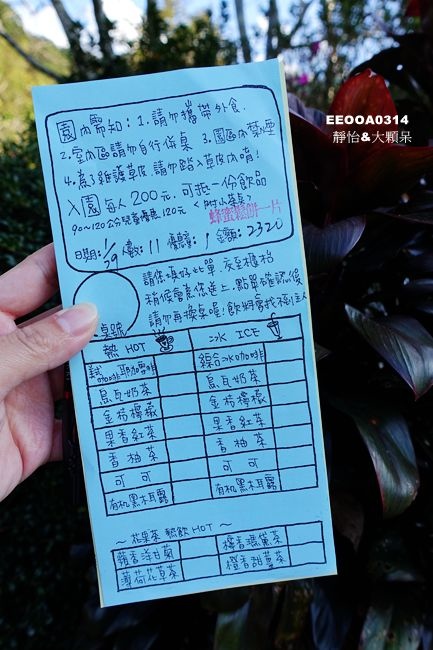 EEOOA0314
靜怡&大顆呆
園內需知：1.請勿攜帶外食.
2.室內區請勿自行併桌 3.園區內禁煙
4.為了維護草皮,請勿踏入草皮內唷!
入園每人200元.可抵一份飲品
90~120公分兒童優惠120元
蜂蜜鬆餅一片
日期:1/29 人數:11 優惠:1 金額:2320
請您填好此單,交至櫃枱
稍後會為您送上.點單確認後
請勿再換桌喔!
桌號
熱 HOT 冰 ICE
耶加啡 綜合冰咖啡
烏瓦奶茶 烏瓦奶茶
金桔檸檬 金桔檸檬
果香紅茶 果香紅茶
香柚茶 香柚茶
可可 可可
有机黑木耳露 有机黑木耳露
~ 花果茶 熱飲 HOT ~
蘋香洋甘菊 檸香馬黛茶
薄荷花草茶 橙香甜薑茶